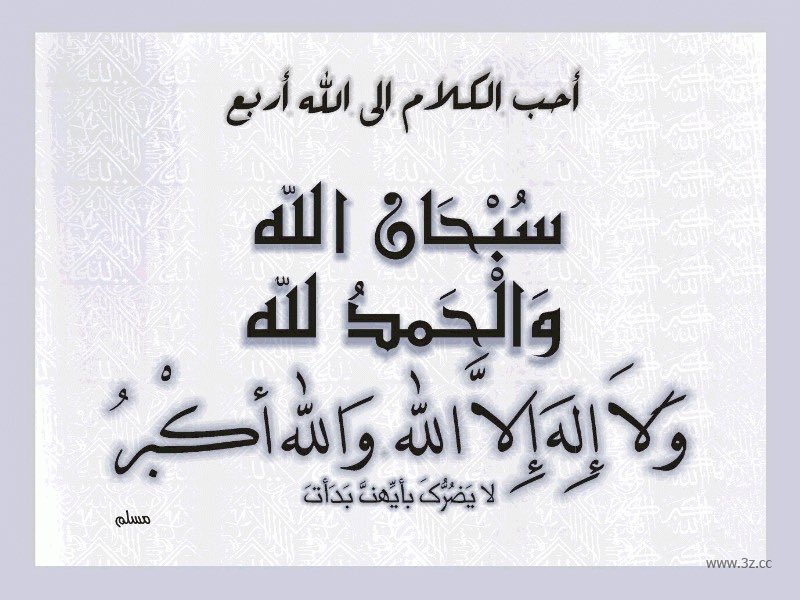 أحب الكلام الى الله أربع
سُبْحَانَ اللّه
وَالْحَمدُ للّه
وَلَا إِلهَ إِلاَّ اللّٰه وَاللّٰه أكْبرُ
لا يَضُرُّكَ بأيِّهنَّ بَدَأتَ
مسلم
www.3z.cc